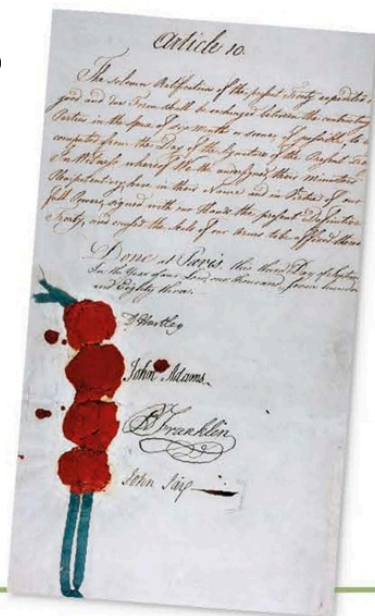 Article 10.
The solemn Ratifications of the present Treaty expedited in
good and due Form shall be exchanged between the contracting
Parties in the Space of six Months or sooner if possible, to be
computed from the Day of the Signature of the Present
In Witness whereof We the undersigned their Ministers
Plenipotentiary have in their Name and in Virtue of our
full Powers, signed with our Hands the present Definitive
Treaty, and caused the Seals of our Arms to be affixed thereto
Done at Paris, this third Day of September
In the Year of our Lord, one thousand, seven hundred
and Eighty three.
D Hartley
John Adams.
B Franklin
John Jay